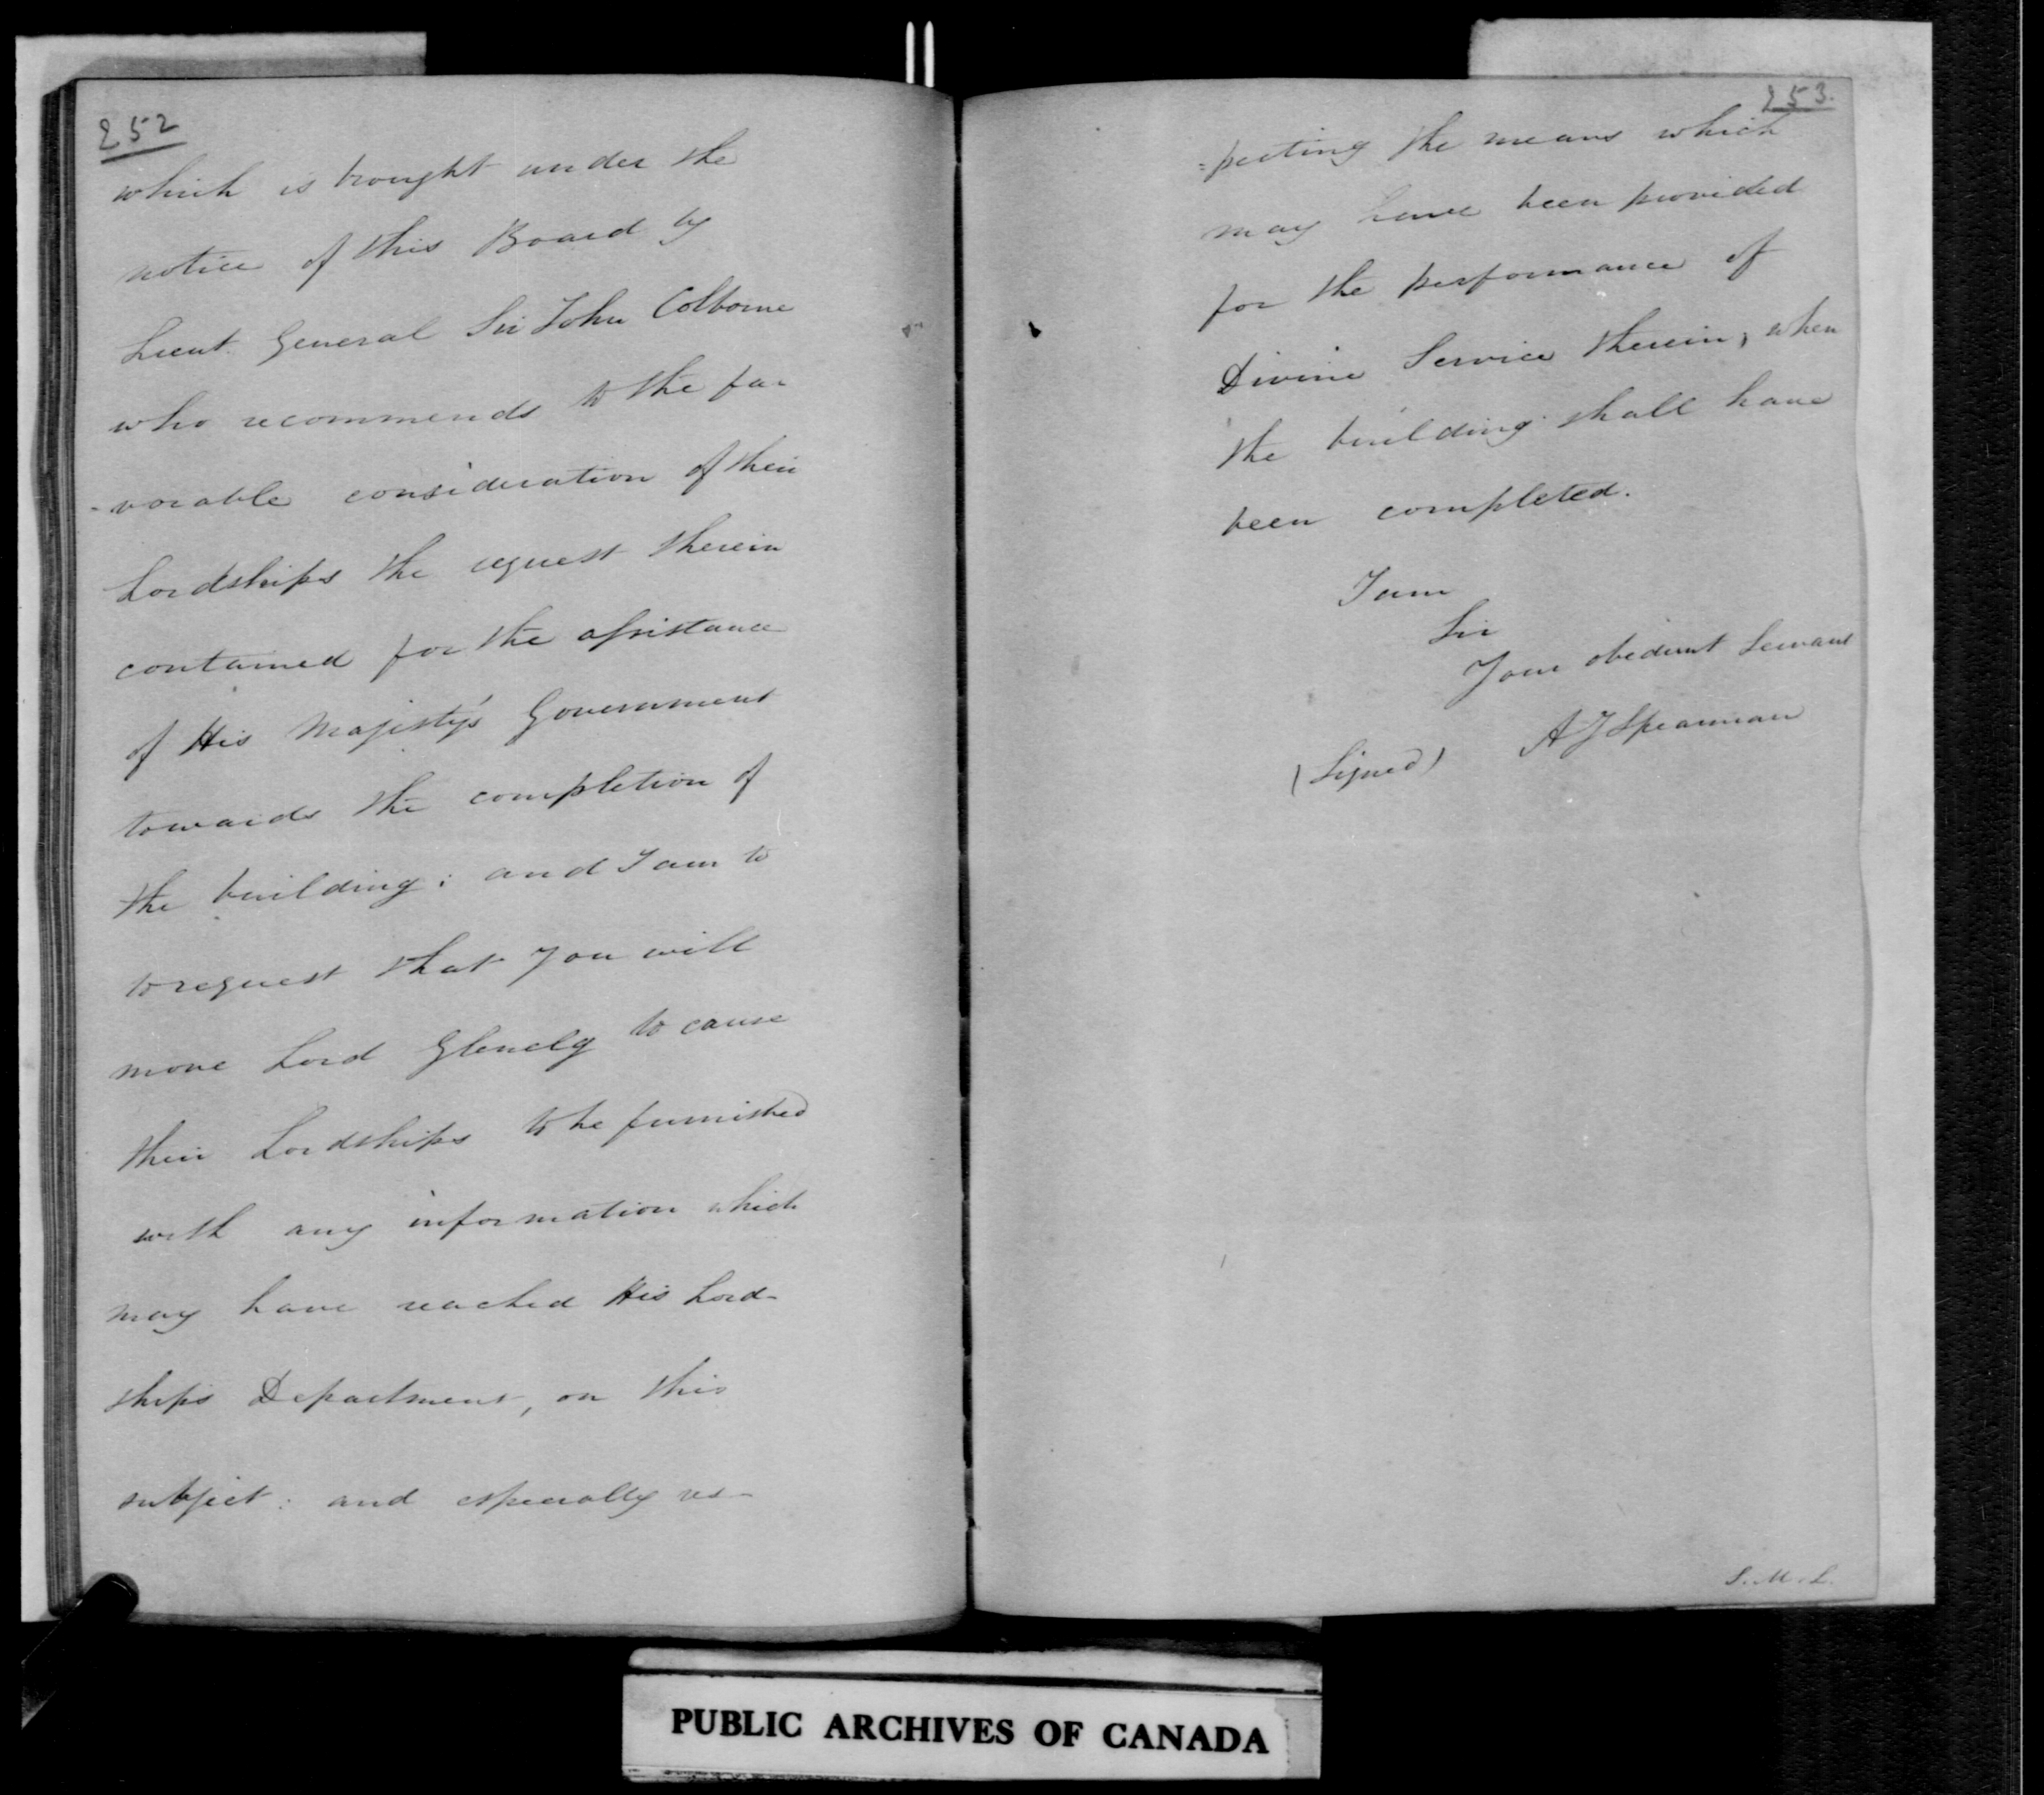 252
which is brought under the
notice of this Board by
Lieut. General Sir John Colborne
who recommends to the fa-
-vorable consideration of their
Lordships the request therein
contained for the assistance
of His Majesty's Government
towards the completion of
the building; and I am to
to request that you will
move Lord Glenelg to cause
their Lordships to be furnished
with any information which
may have reached His Lord-
ship's Department, on this
subject: and especially res-
253.
=pecting the means which
may have been provided
for the performance of
Divine Service therein, when
the building shall have
been completed.
I am
Sir
Your obedient Servant
(Signed) A Y Spearman
S. M. L.
PUBLIC ARCHIVES OF CANADA